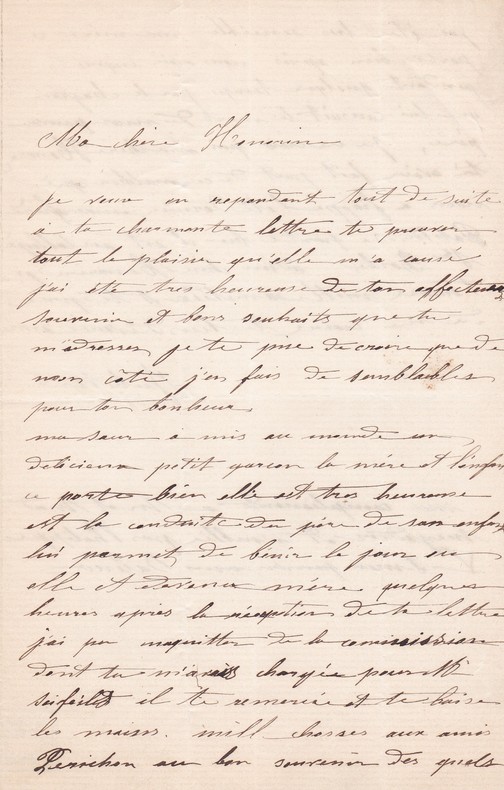 Ma chère Honorine
je veux en repondant tout de suite
à ta charmante lettre te prouver
tout le plaisir qu'elle m'a causé
j'ai été tres heureuse de ton affectueux
souvenir et bons souhaits que tu
m'adresses, je te prie de croire que de
mon côté j'en fais de semblables
pour ton bonheur
ma sœur a mis au monde un
delicieux petit garcon la mére et l'enfant
ce porte bien elle est tres heureuse
et la conduite du père de son enfant
lui permet de benir le jour ou
elle est devenue mére quelques
heures après la réception de ta lettre
j'ai pu m'aquitter de la commission
dont tu m'avais chargée pour Mr
il te remercie et te baise
les mains. mill choses aux amis
Perichon au bon souvenir des quels